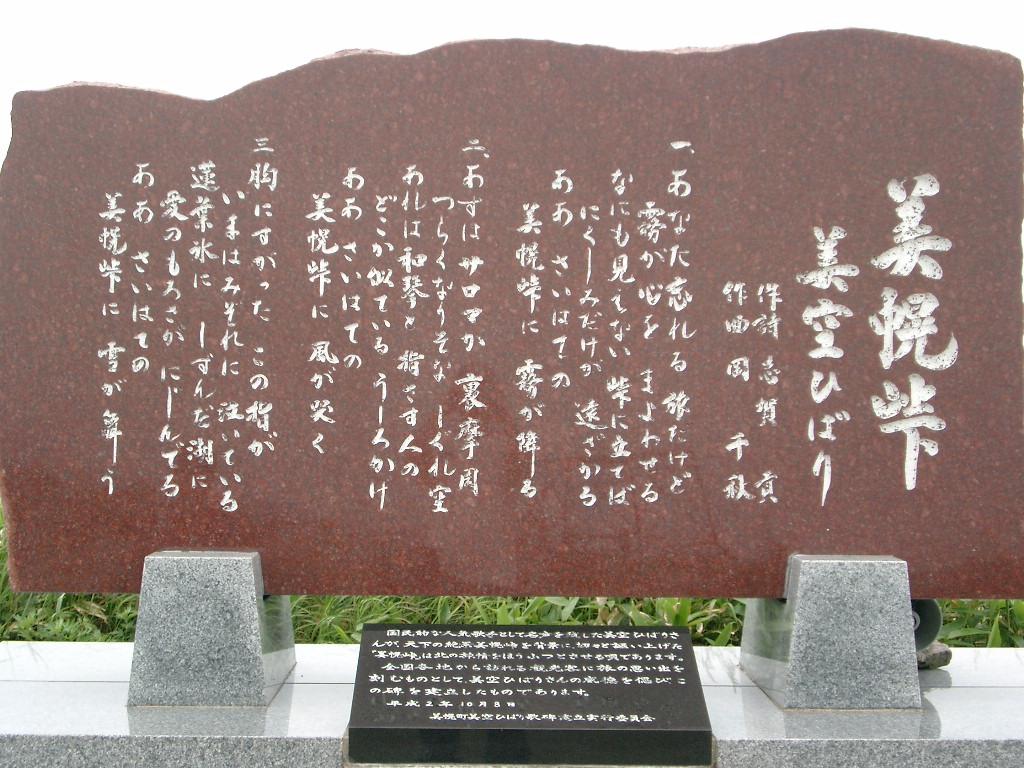 美幌峠
美空ひばり
作詩 志賀 貢
作曲 岡 千秋
一、あなた忘れる 旅だけど
霧が心を まよわせる
なにも見えない 峠に立てば
にくしみだけが 遠ざかる
ああ さいはての
美幌峠に 霧が降る
二、あすはサロマか 裏摩周
つらくなりそな しぐれ空
あれは和琴と 指さす人の
どこか似ている うしろかげ
ああ さいはての
美幌峠に 風が哭く
三 胸にすがった この指が
いまはみぞれに 泣いている
蓮葉氷に しずんだ湖に
愛のもろさが にじんでる
ああ さいはての
美幌峠に 雪が舞う
国民的な人気歌手として名声を残した美空ひばりさ
んが、天下の絶景美幌峠を背景に、切々と謳い上げた
「美幌峠」は北の旅情をほうふつとさせる唄であります。
全国各地から訪れる観光客に旅の思い出を
刻むものとして、美空ひばりさんの威徳を偲び、こ
の碑を建立したものであります。
平成2年10月8日
美幌町美空ひばり歌碑建立実行委員会